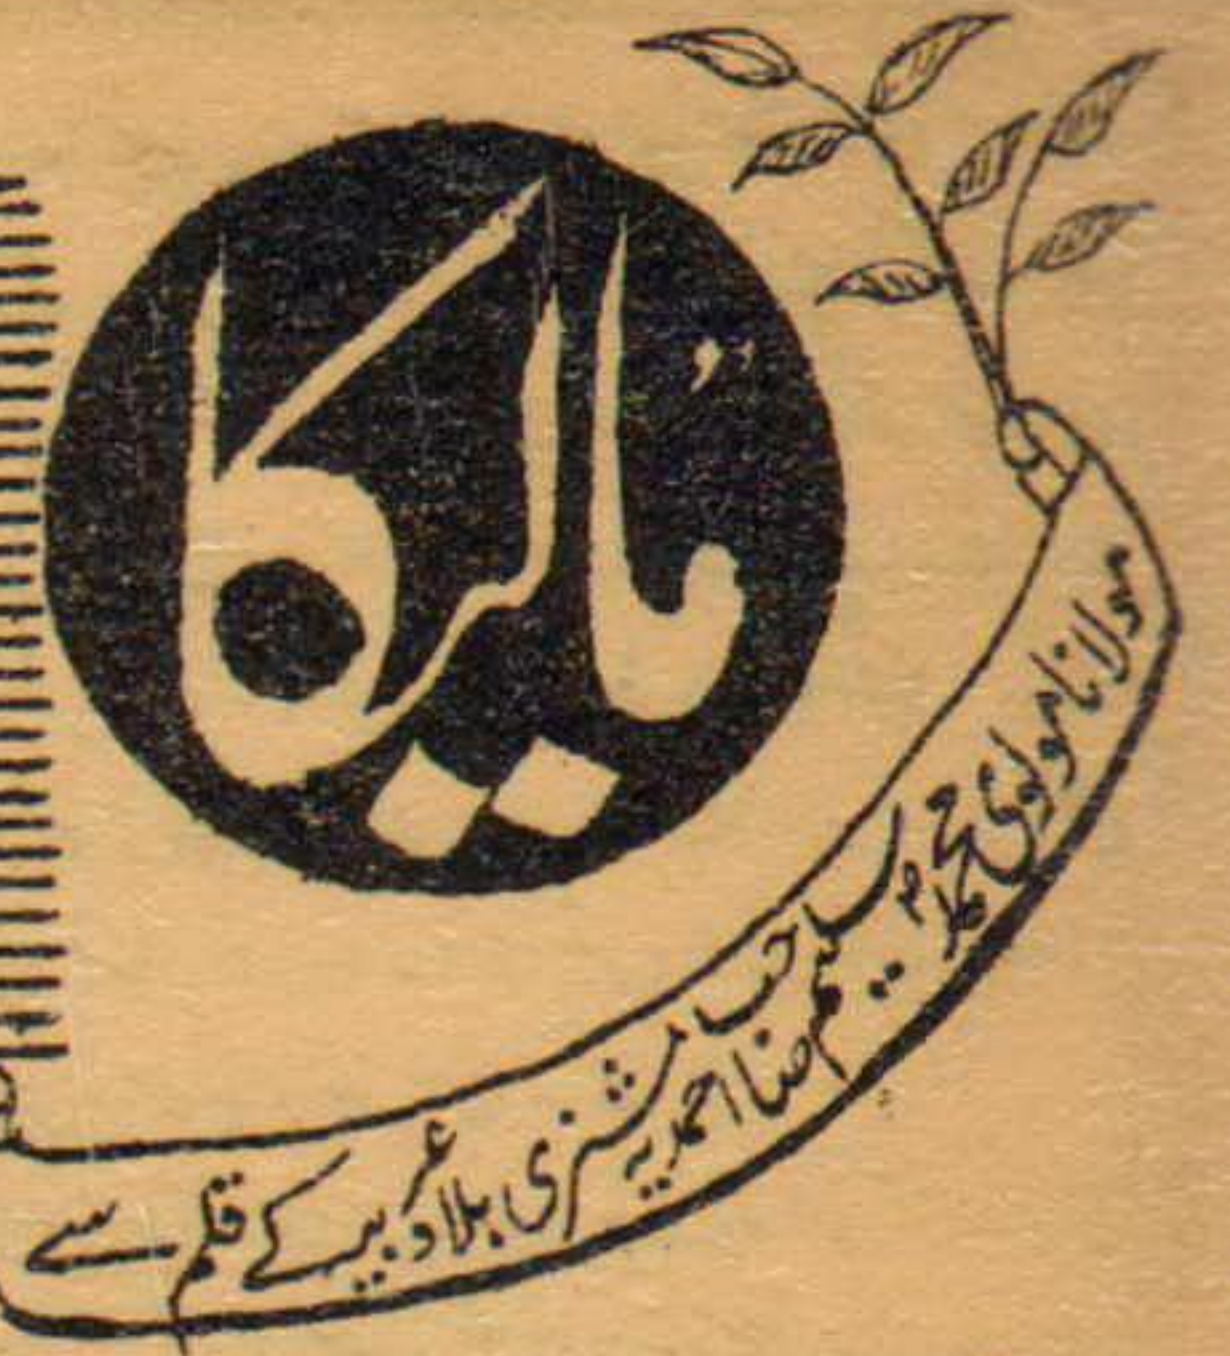 مولانا مولوی محمد سلیم صاحب احمدیہ مشنری بلاد عربیہ کے قلم سے